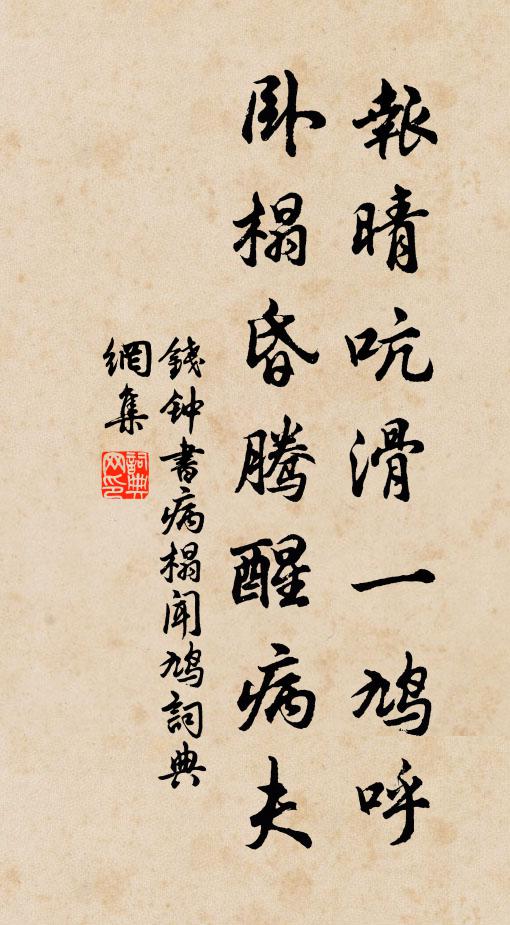 報晴吭滑一鳩呼
卧榻昏騰醒病夫
錢钟書病榻聞鳩詞典
網集
詞典
网印